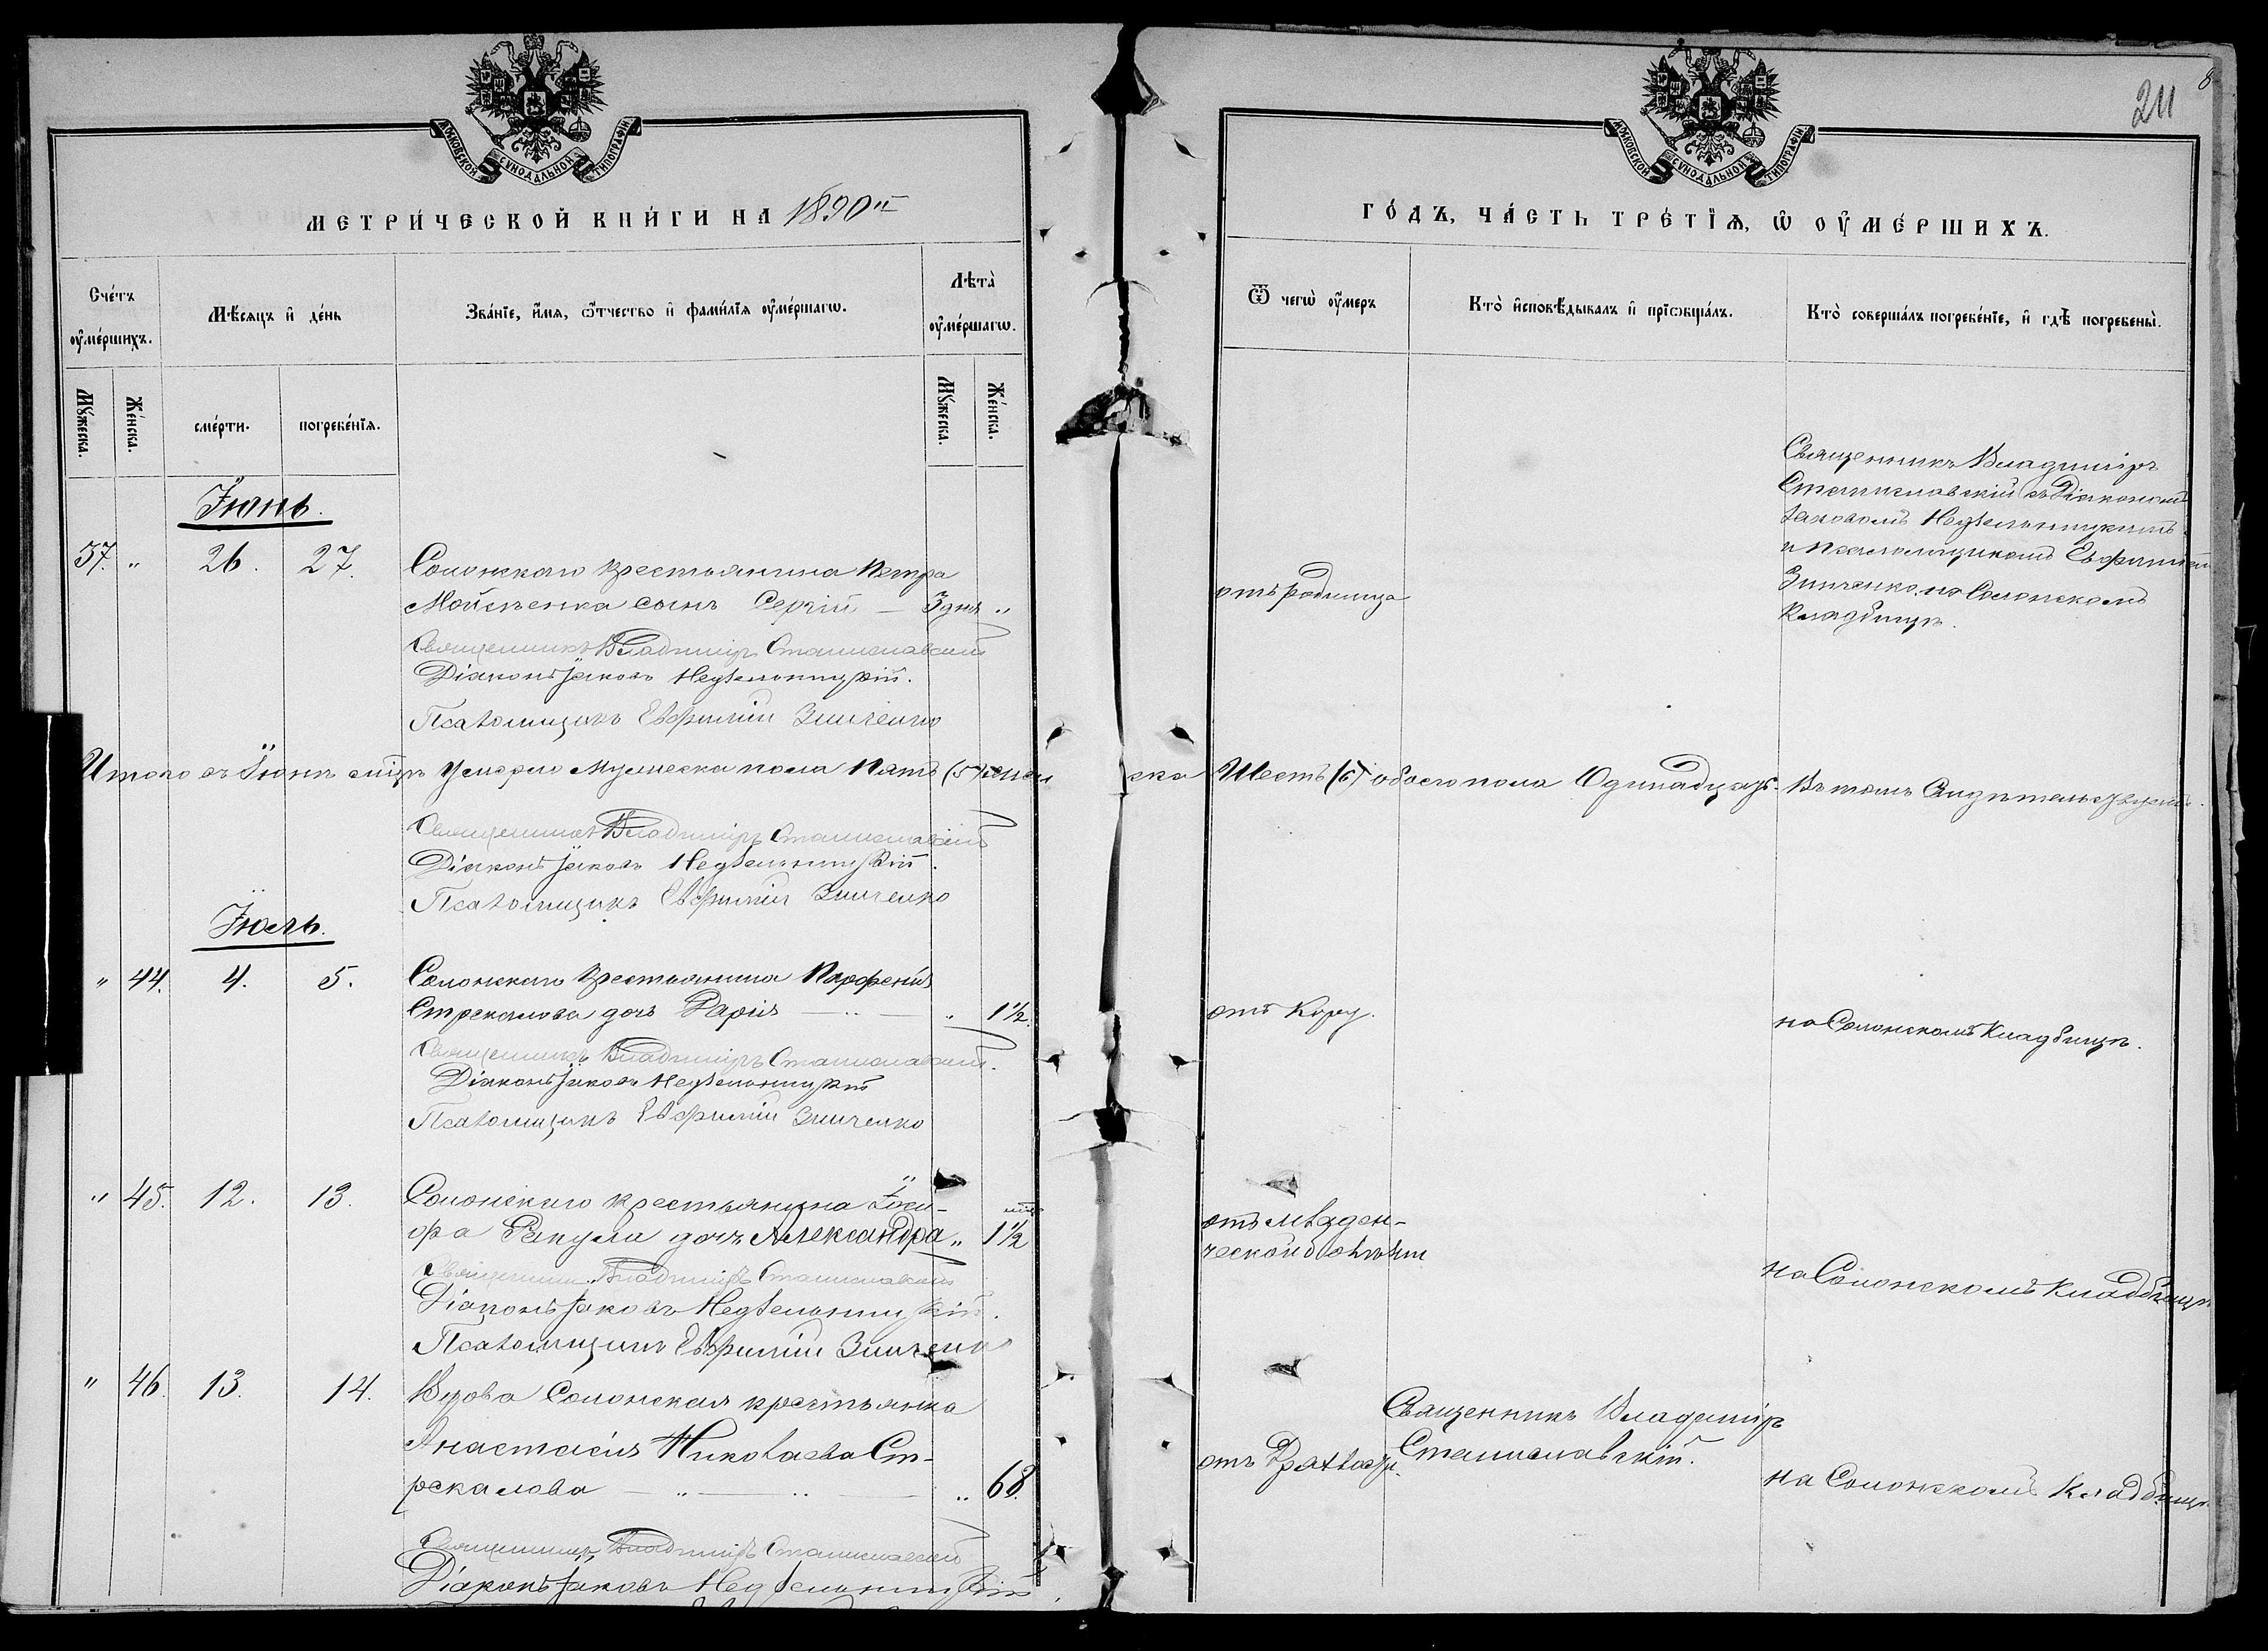 МОСКОВСКОЙ СѴНОДАЛЬНОЙ ТИПОГРАФІИ
МЕТРИ́ЧЕСКОЙ КНИ́ГИ НА 1890й
Сче́тъ ᲂу҆ме́ршихъ.
Мѣ́сяцъ и҆ де́нь
Зва́нїе, и҆́мя, ѻ҆́тчество и҆ фами́лїя ᲂу҆ме́ршагѡ.
Лѣта̀ ᲂу҆ме́ршагѡ.
Мꙋ́жеска.
Же́нска.
сме́рти.
погребе́нїя.
Мꙋ́жеска.
Же́нска.
Іюнь.
37. " 26. 27. Солонскаго крестьянина Петра
Мойсѣенка сынъ Сергій — 3 дня "
Священникъ Владиміръ Станиславскій
Діаконъ Іаковъ Недѣльницкій.
Псаломщикъ Евфимій Зинченко
Итого въ Іюнѣ мцѣ Умерло Мужеска пола Пять (5) женска
Священникъ Владиміръ Станиславскій
Діаконъ Іаковъ Недѣльницкій.
Псаломщикъ Евфимій Зинченко
Іюль.
" 44. 4. 5. Солонскаго Крестьянина Парфенія
Стрекалова дочь Дарія — " — " 1½.
Священникъ Владиміръ Станиславскій.
Діаконъ Іаковъ Недѣльницкій
Псаломщикъ Евфимій Зинченко
" 45. 12. 13. Солонскаго крестьянина Іоси-
фа дочь Александра " 1½
Священникъ Владиміръ Станиславскій
Діаконъ Іаковъ Недѣльницкій.
Псаломщикъ Евфимій Зинченко
" 46. 13. 14. Вдова Солонская крестьянка
Анастасія Николаева Ст-
рекалова — " — " — " 68.
Священникъ Владиміръ Станиславскій
Діаконъ Іаковъ Недѣльницкій.
211
МОСКОВСКОЙ СѴНОДАЛЬНОЙ ТИПОГРАФІИ
ГО́ДЪ, ЧА́СТЬ ТРЕ́ТЇѦ, Ѡ҆ ОУ҆МЕ́РШИХЪ.
Ѿ чегѡ̀ ᲂу҆́меръ
Кто̀ и҆сповѣ́дывалъ и҆ прїѡбща́лъ.
Кто̀ соверша́лъ погребе́нїе, и҆ гдѣ̀ погребены̀.
Священникъ Владиміръ
Станиславскій съ Діакономъ
Іаковомъ Недѣльницкимъ
и псаломщикомъ Евфиміемъ
Зинченко. на Солонскомъ
Кладбищѣ.
отъ родимца
Шесть (6) обоего пола Одинадцать. Въ томъ Свидѣтельствуемъ.
отъ Кору.
на Солонскомъ Кладбищѣ.
отъ младен-
ческой болѣзни
на Солонскомъ Кладбищѣ
Священникъ Владиміръ
Станиславскій.
отъ
на Солонскомъ Кладбищѣ